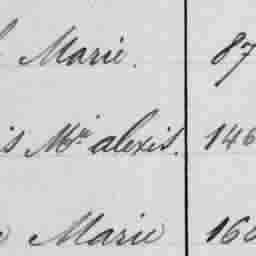 Marie. 87
is Mie alexis. 146
Marie 160